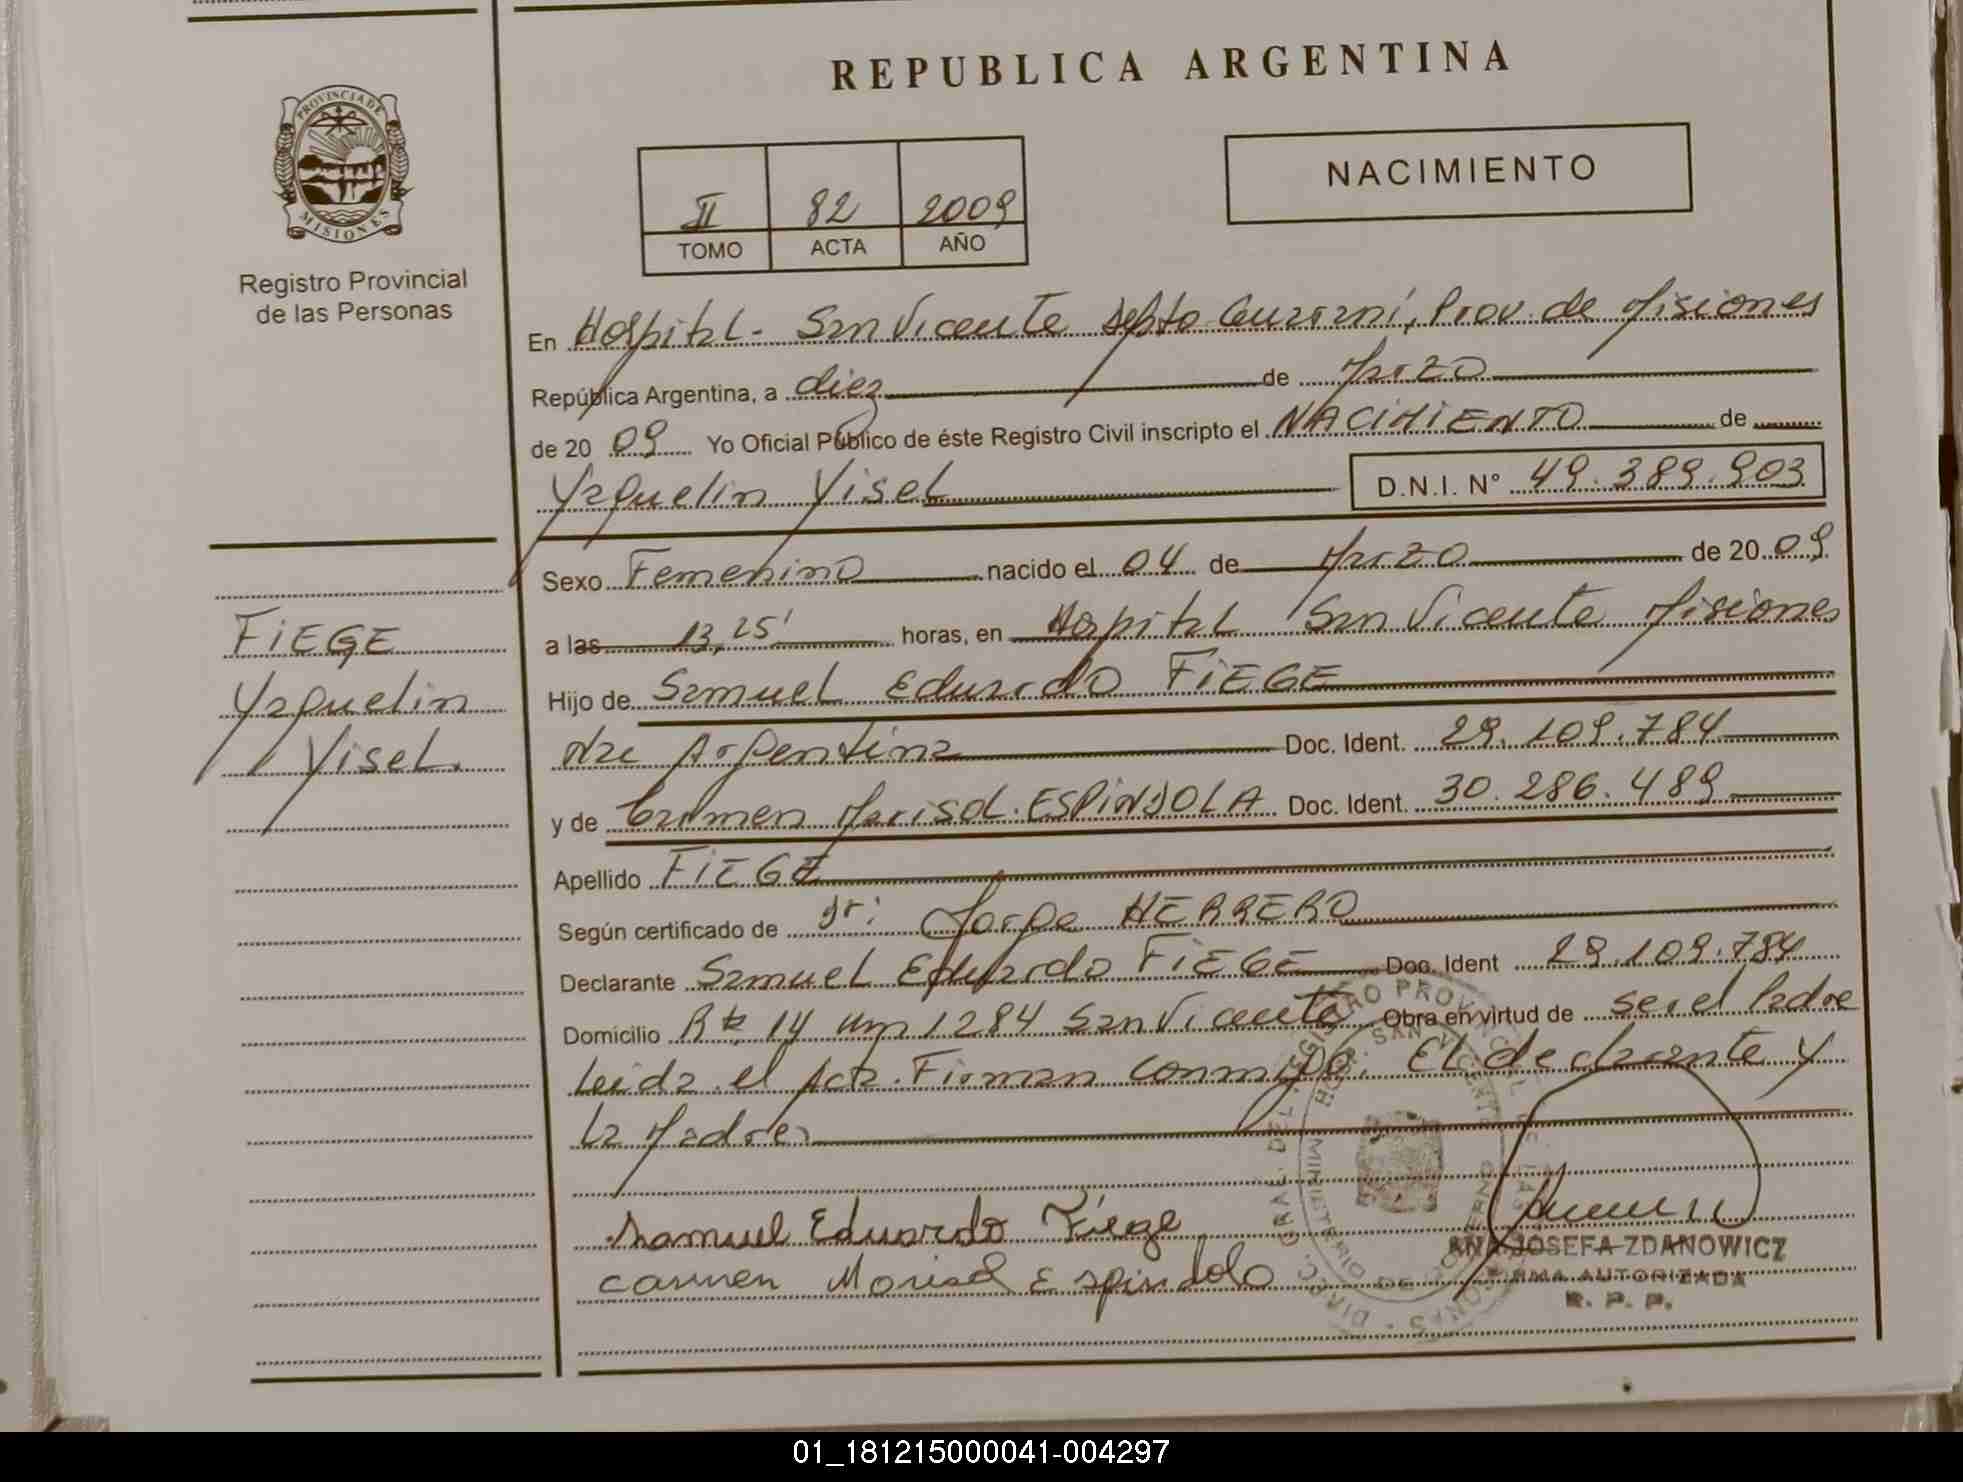 REPUBLICA ARGENTINA
PROVINCIA DE
MISIONES
Registro Provincial
de las Personas
NACIMIENTO
II 82 2009
TOMO ACTA AÑO
En Hospital - San Vicente Depto Guaraní, Prov. de Misiones
República Argentina, a diez de Marzo
de 20 09 Yo Oficial Público de éste Registro Civil inscripto el NACIMIENTO de
Yaquelin Yisel D.N.I. N° 49.389.903
Sexo Femenino nacido el 04 de Marzo de 20 09
a las 13,25' horas, en Hospital San Vicente Misiones
Hijo de Samuel Eduardo FIEGE
Nac Argentina Doc. Ident. 29.109.784
y de Carmen Marisol ESPINDOLA Doc. Ident. 30.286.489
Apellido FIEGE
Según certificado de Dr: Jorge HERRERO
Declarante Samuel Eduardo FIEGE Doc. Ident 29.109.784
Domicilio Rta 14 Km 1284 San Vicente Obra en virtud de ser el Padre
Leida el Acta. Firman conmigo. El declarante y
la Madre
Samuel Eduardo Fiege
Carmen Marisol Espindola
ANA JOSEFA ZDANOWICZ
FIRMA AUTORIZADA
R. P. P.
FIEGE
Yaquelin
Yisel.
01_181215000041-004297